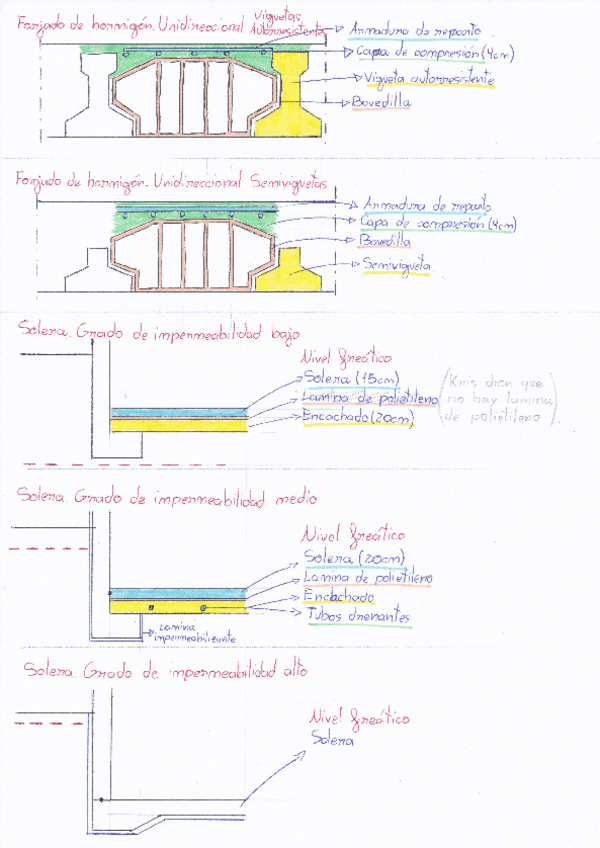 Forjado de hormigón. Unidireccional Viguetas
Autorresistentes
Armadura de reparto
Capa de compresión (4cm)
Vigueta autorresistente
Bovedilla
Forjado de hormigón. Unidireccional Semiviguetas
Armadura de reparto
Capa de compresión (4cm)
Bovedilla
Semivigueta
Solera. Grado de impermeabilidad bajo
Nivel freático
Solera (15cm)
Lamina de polietileno
Encachado (20cm)
(Kris dicen que
no hay lamina
de polietileno)
Solera. Grado de impermeabilidad medio
Nivel freático
Solera (20cm)
Lamina de polietileno
Encachado
Tubos drenantes
Lamina
impermeabilizante
Solera. Grado de impermeabilidad alto
Nivel freático
Solera